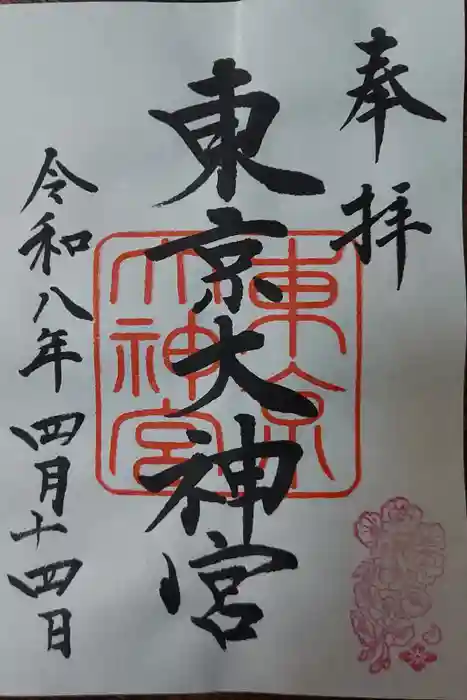 奉拝
東京大神宮
東京
大神宮
令和八年四月十四日